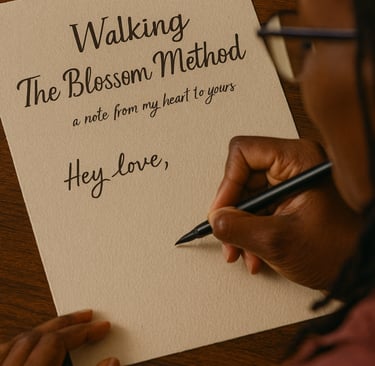 Walking
The Blossom Method
a note from my heart to yours
Hey love,